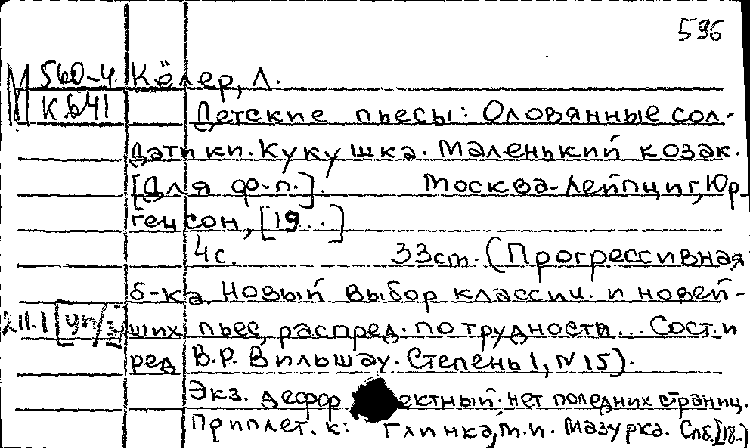 596
М 560-4 Кёлер, Л.
К 641 Детские пьесы: Оловянные сол-
датики. Кукушка. Маленький козак.
[Для ф-п.]. Москва-Лейпциг, Юр-
генсон, [19..]
4с. 33см. (Прогрессивная
б-ка. Новый выбор классич. и новей-
ших пьес, распред. по трудности... Сост. и
ред В.Р. Вильшау. Степень 1, N 15).
Экз. дефектный: нет поледних страниц.
Приплет. к: Глинка, М.И. Мазурка. Спб,